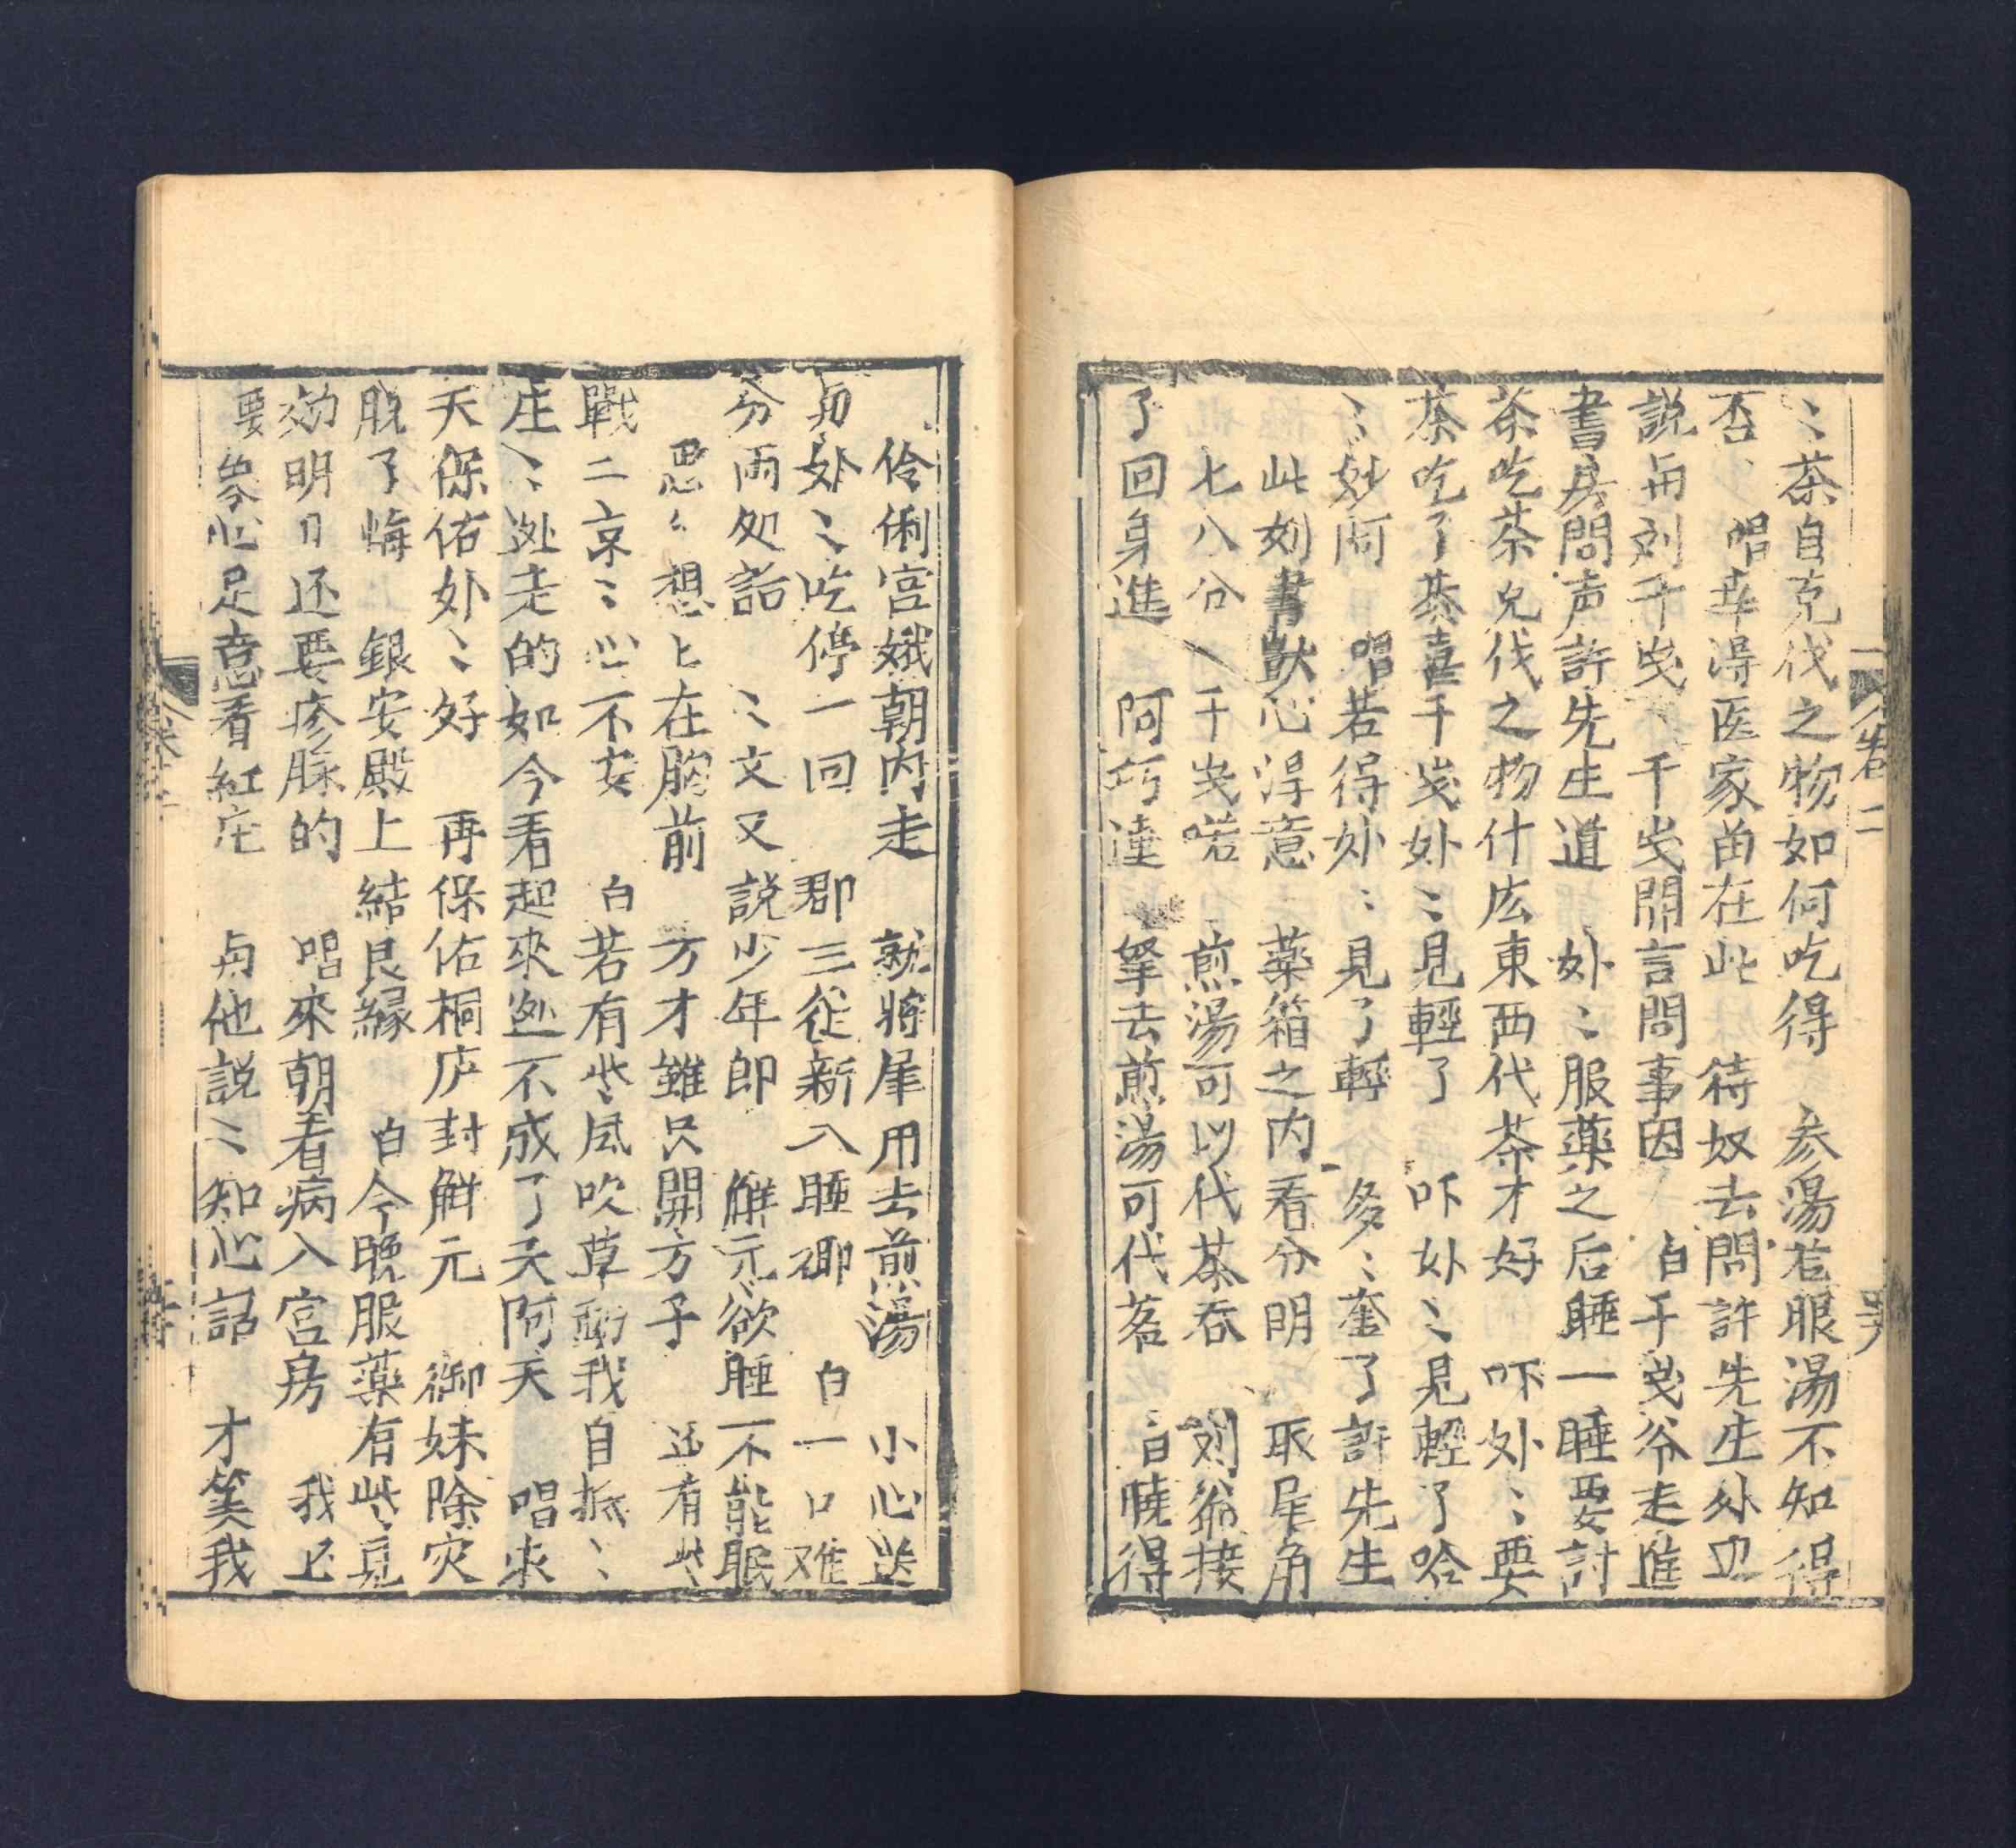 〻茶自克伐之物如何吃得　参湯若服湯不知得
否　唱幸淂医家畄在此　待奴去問許先生外边
説　白千歲爷走進
書房問声許先生道　妙〻服藥之后睡一睡要討
茶吃茶克伐之物什広東西代茶才好　吓妙〻要
茶吃了恭喜千歲妙〻見輕了　吓妙〻見輕了哈
〻妙阿　唱若得妙〻見了輕　多〻奎了許先生
此刻書獃心淂意　藥箱之内看分明　取犀角
七八分　千歲喏　煎湯可以代茶吞　刘爺接
了回身進　阿巧達　拏去煎湯可代茗　曉得
卷二
伶俐宫娥朝内走　就將犀用去煎湯　小心送
与妙〻吃停一回　郡主從新入睡鄉　白一口难
分兩処話　〻文又説少年郎　觧元欲睡不能眠
思〻想上在胸前　方才雖只開方子　还有些
戰二京〻心不安　白若有些風吹草動我自抵〻
庄〻迯走的如今看起來迯不成了天阿天　唱求
天保佑妙〻好　再保佑桐庐封觧元　御妹除灾
脫了悔　銀安殿上結良縁　白今晚服藥有些見
効明日还要疹脉的　唱來朝看病入宫房　我还
要　心足意看紅庄　与他説〻知心話　才笑我